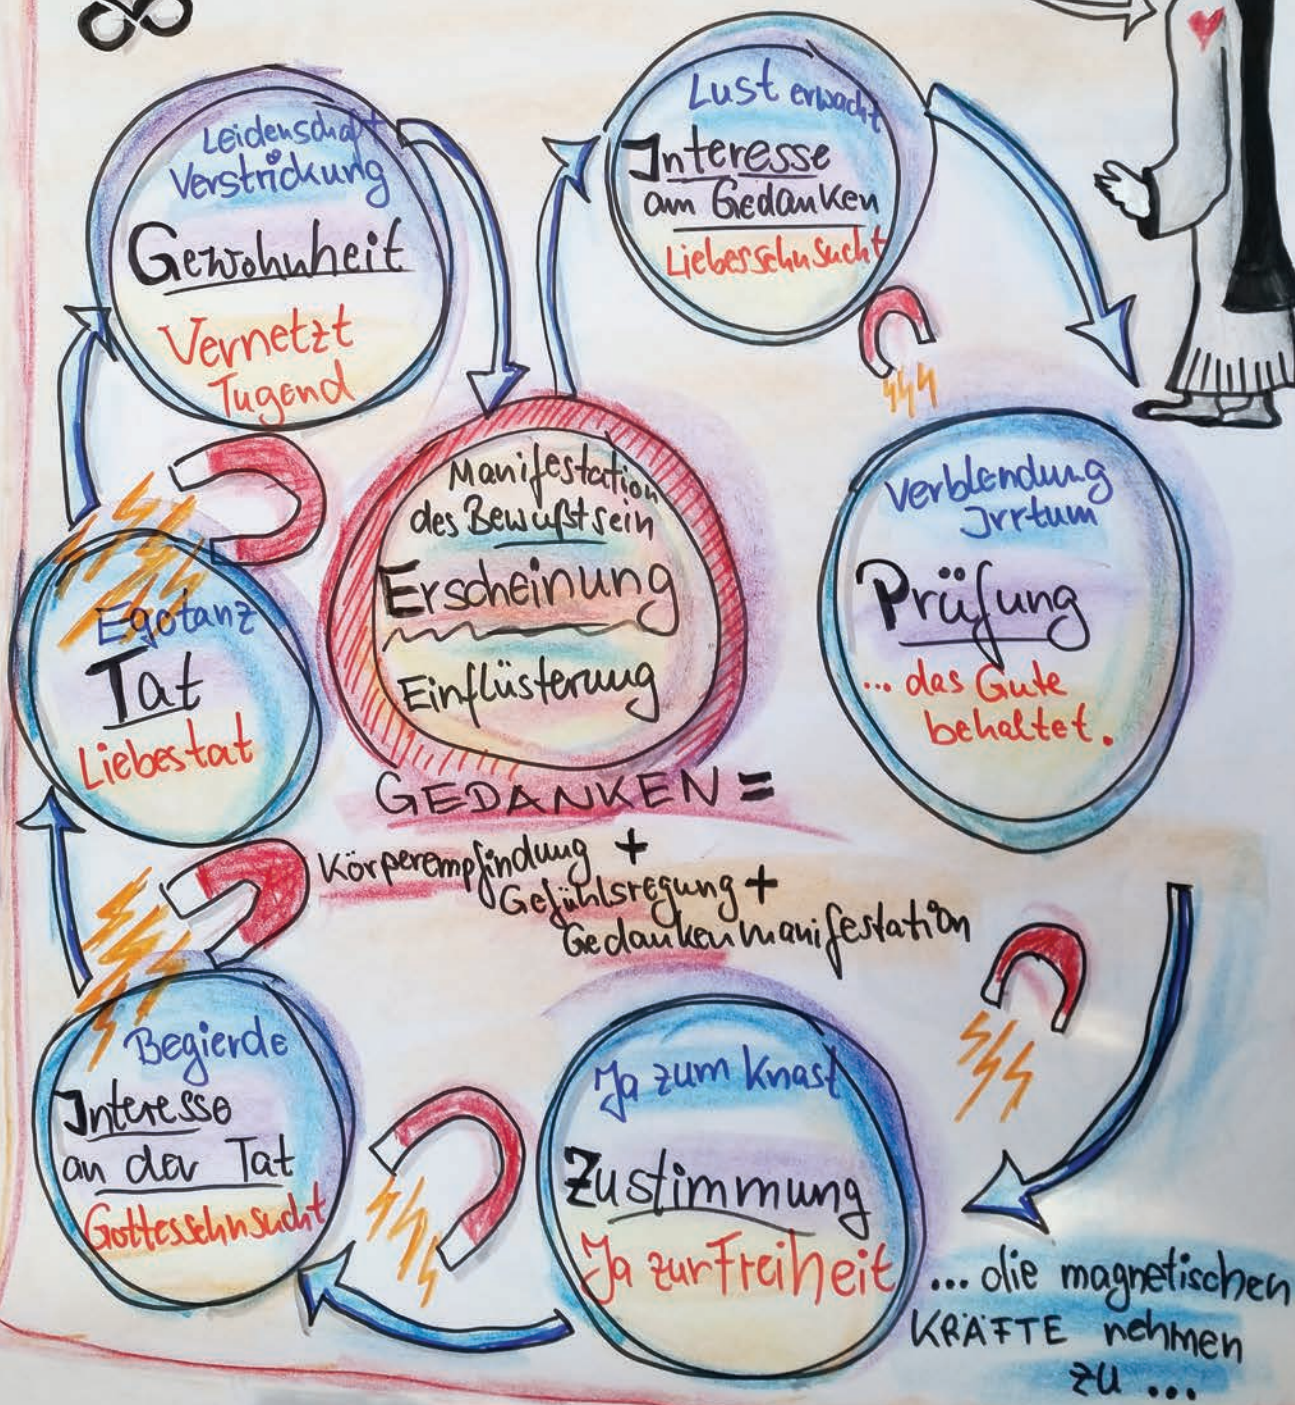 Leidenschaft
Verstrickung
Gewohnheit
Vernetzt
Tugend
Lust erwacht
Interesse
am Gedanken
Liebessehnsucht
Manifestation
des Bewußtsein
Erscheinung
Einflüsterung
Verblendung
Irrtum
Prüfung
... das Gute
behaltet.
Egotanz
Tat
Liebestat
GEDANKEN =
Körperempfindung +
Gefühlsregung +
Gedankenmanifestation
Begierde
Interesse
an der Tat
Gottessehnsucht
Ja zum Knast
Zustimmung
Ja zur Freiheit
... die magnetischen
KRÄFTE nehmen
zu ...